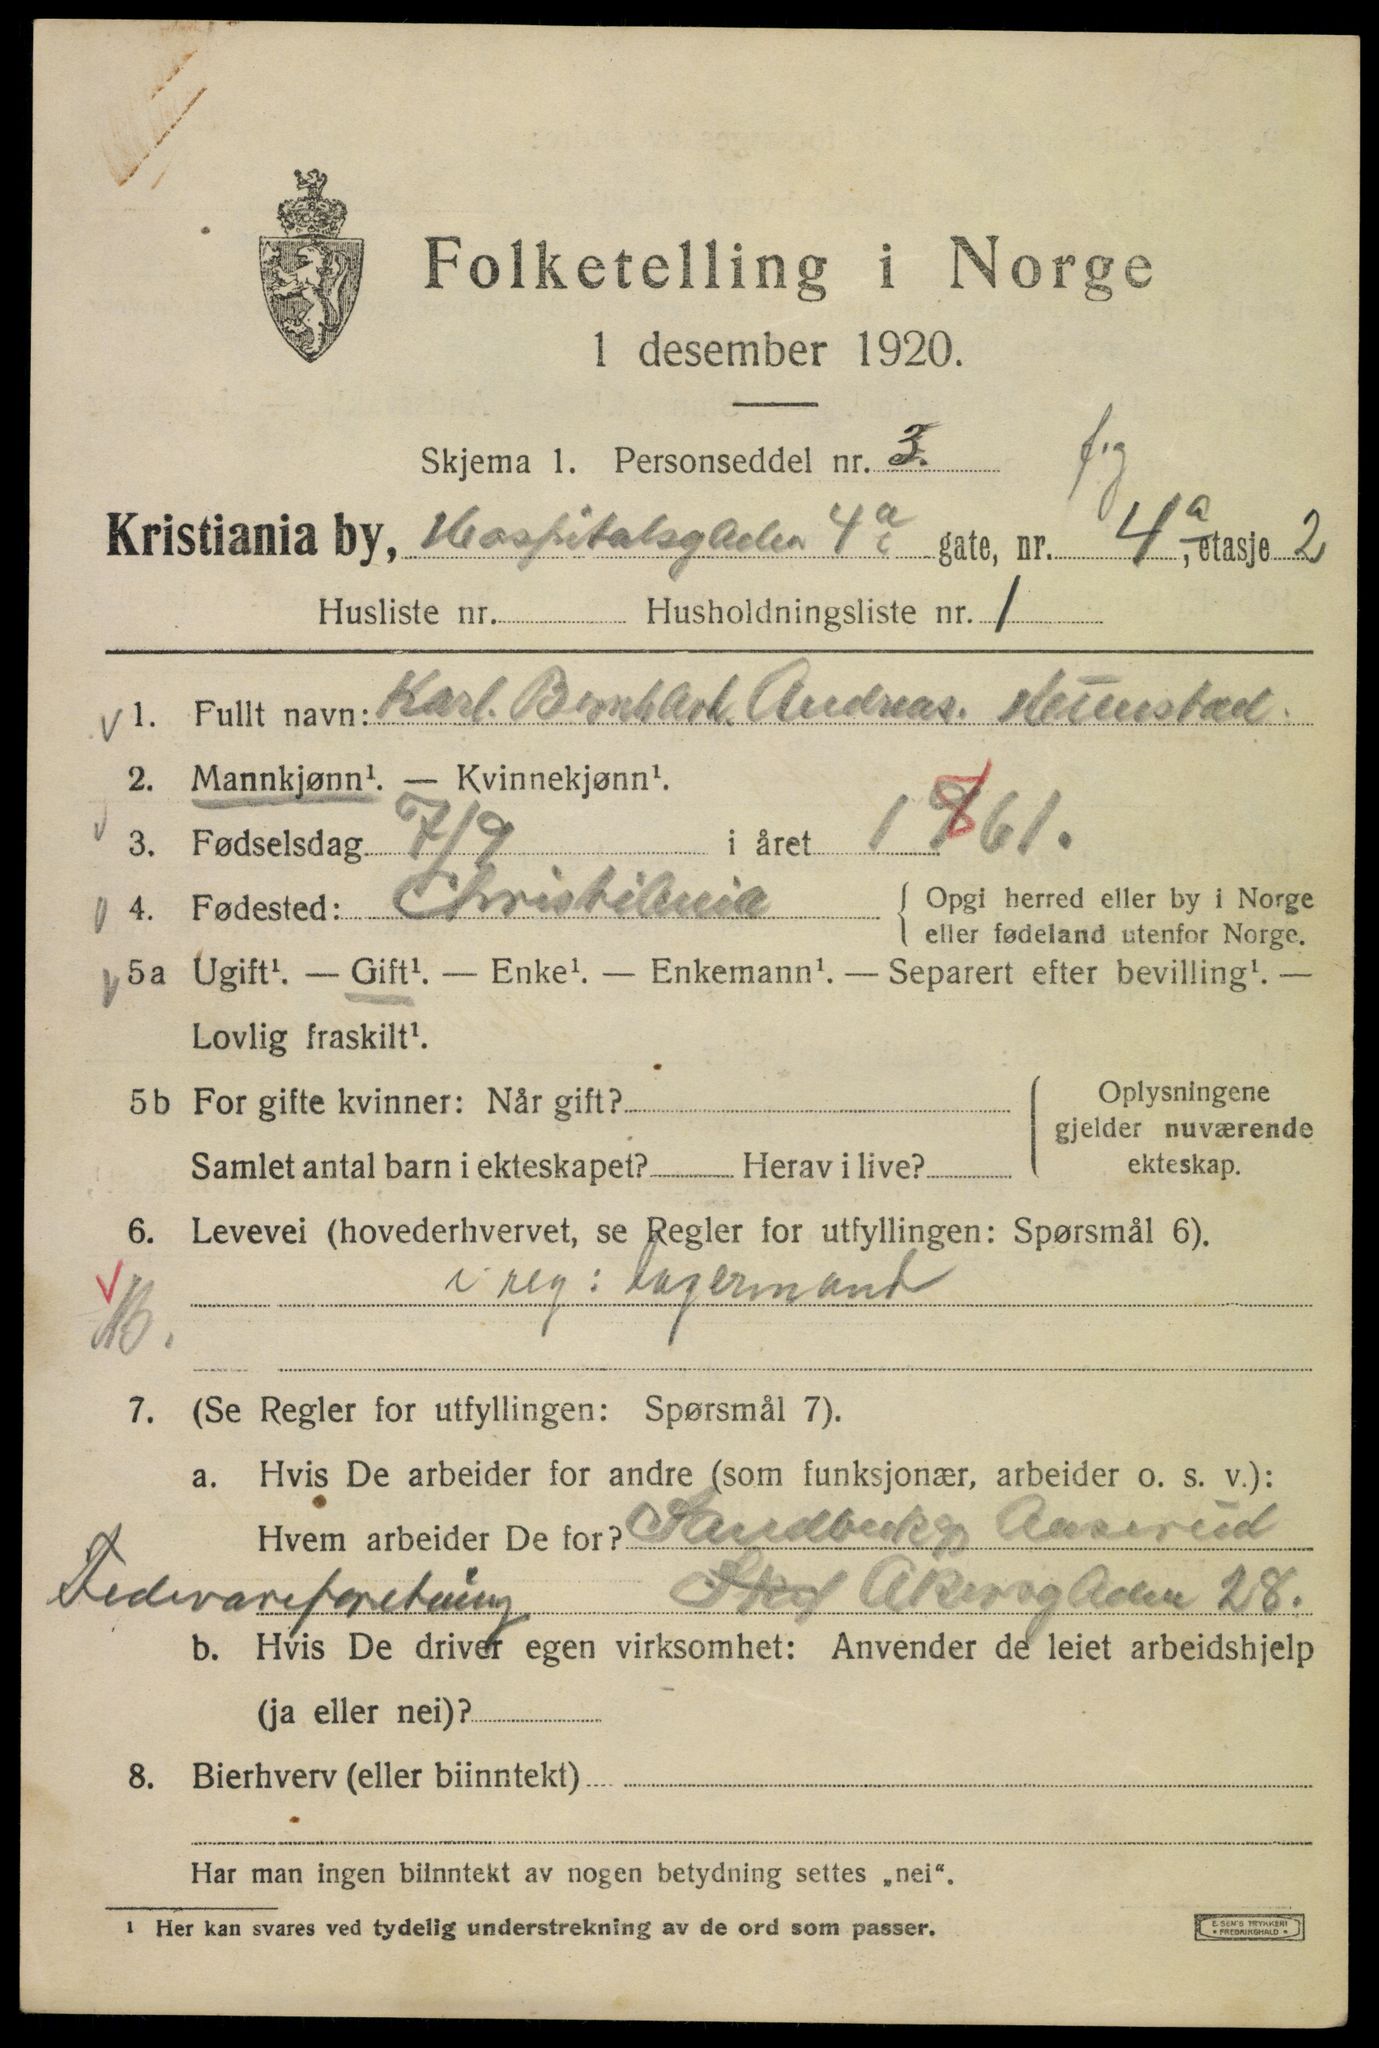 Folketelling i Norge
1 desember 1920.
Skjema 1. Personseddel nr. 3.
Kristiania by, Hospitalsgaden 4a gate, nr. 4a, etasje 2
Husliste nr. Husholdningsliste nr. 1
1. Fullt navn: Karl. Bernhard. Andreas.
2. Mannkjønn¹. — Kvinnekjønn¹.
3. Fødselsdag 7/9 i året 1861.
4. Fødested: Christiania { Opgi herred eller by i Norge
eller fødeland utenfor Norge.
5a Ugift¹. — Gift¹. — Enke¹. — Enkemann¹. — Separert efter bevilling¹. —
Lovlig fraskilt¹.
5b For gifte kvinner: Når gift? { Oplysningene
gjelder nuværende
Samlet antal barn i ekteskapet? Herav i live? ekteskap.
6. Levevei (hovederhvervet, se Regler for utfyllingen: Spørsmål 6).
i reg: lagermand
7. (Se Regler for utfyllingen: Spørsmål 7).
a. Hvis De arbeider for andre (som funksjonær, arbeider o. s. v.):
Hvem arbeider De for? Aaserud
Fedevareforetning Akersgaden 28.
b. Hvis De driver egen virksomhet: Anvender de leiet arbeidshjelp
(ja eller nei)?
8. Bierhverv (eller biinntekt)
Har man ingen biinntekt av nogen betydning settes „nei“.
¹ Her kan svares ved tydelig understrekning av de ord som passer.
E. SEM'S TRYKKERI
* FREDRIKSHALD *